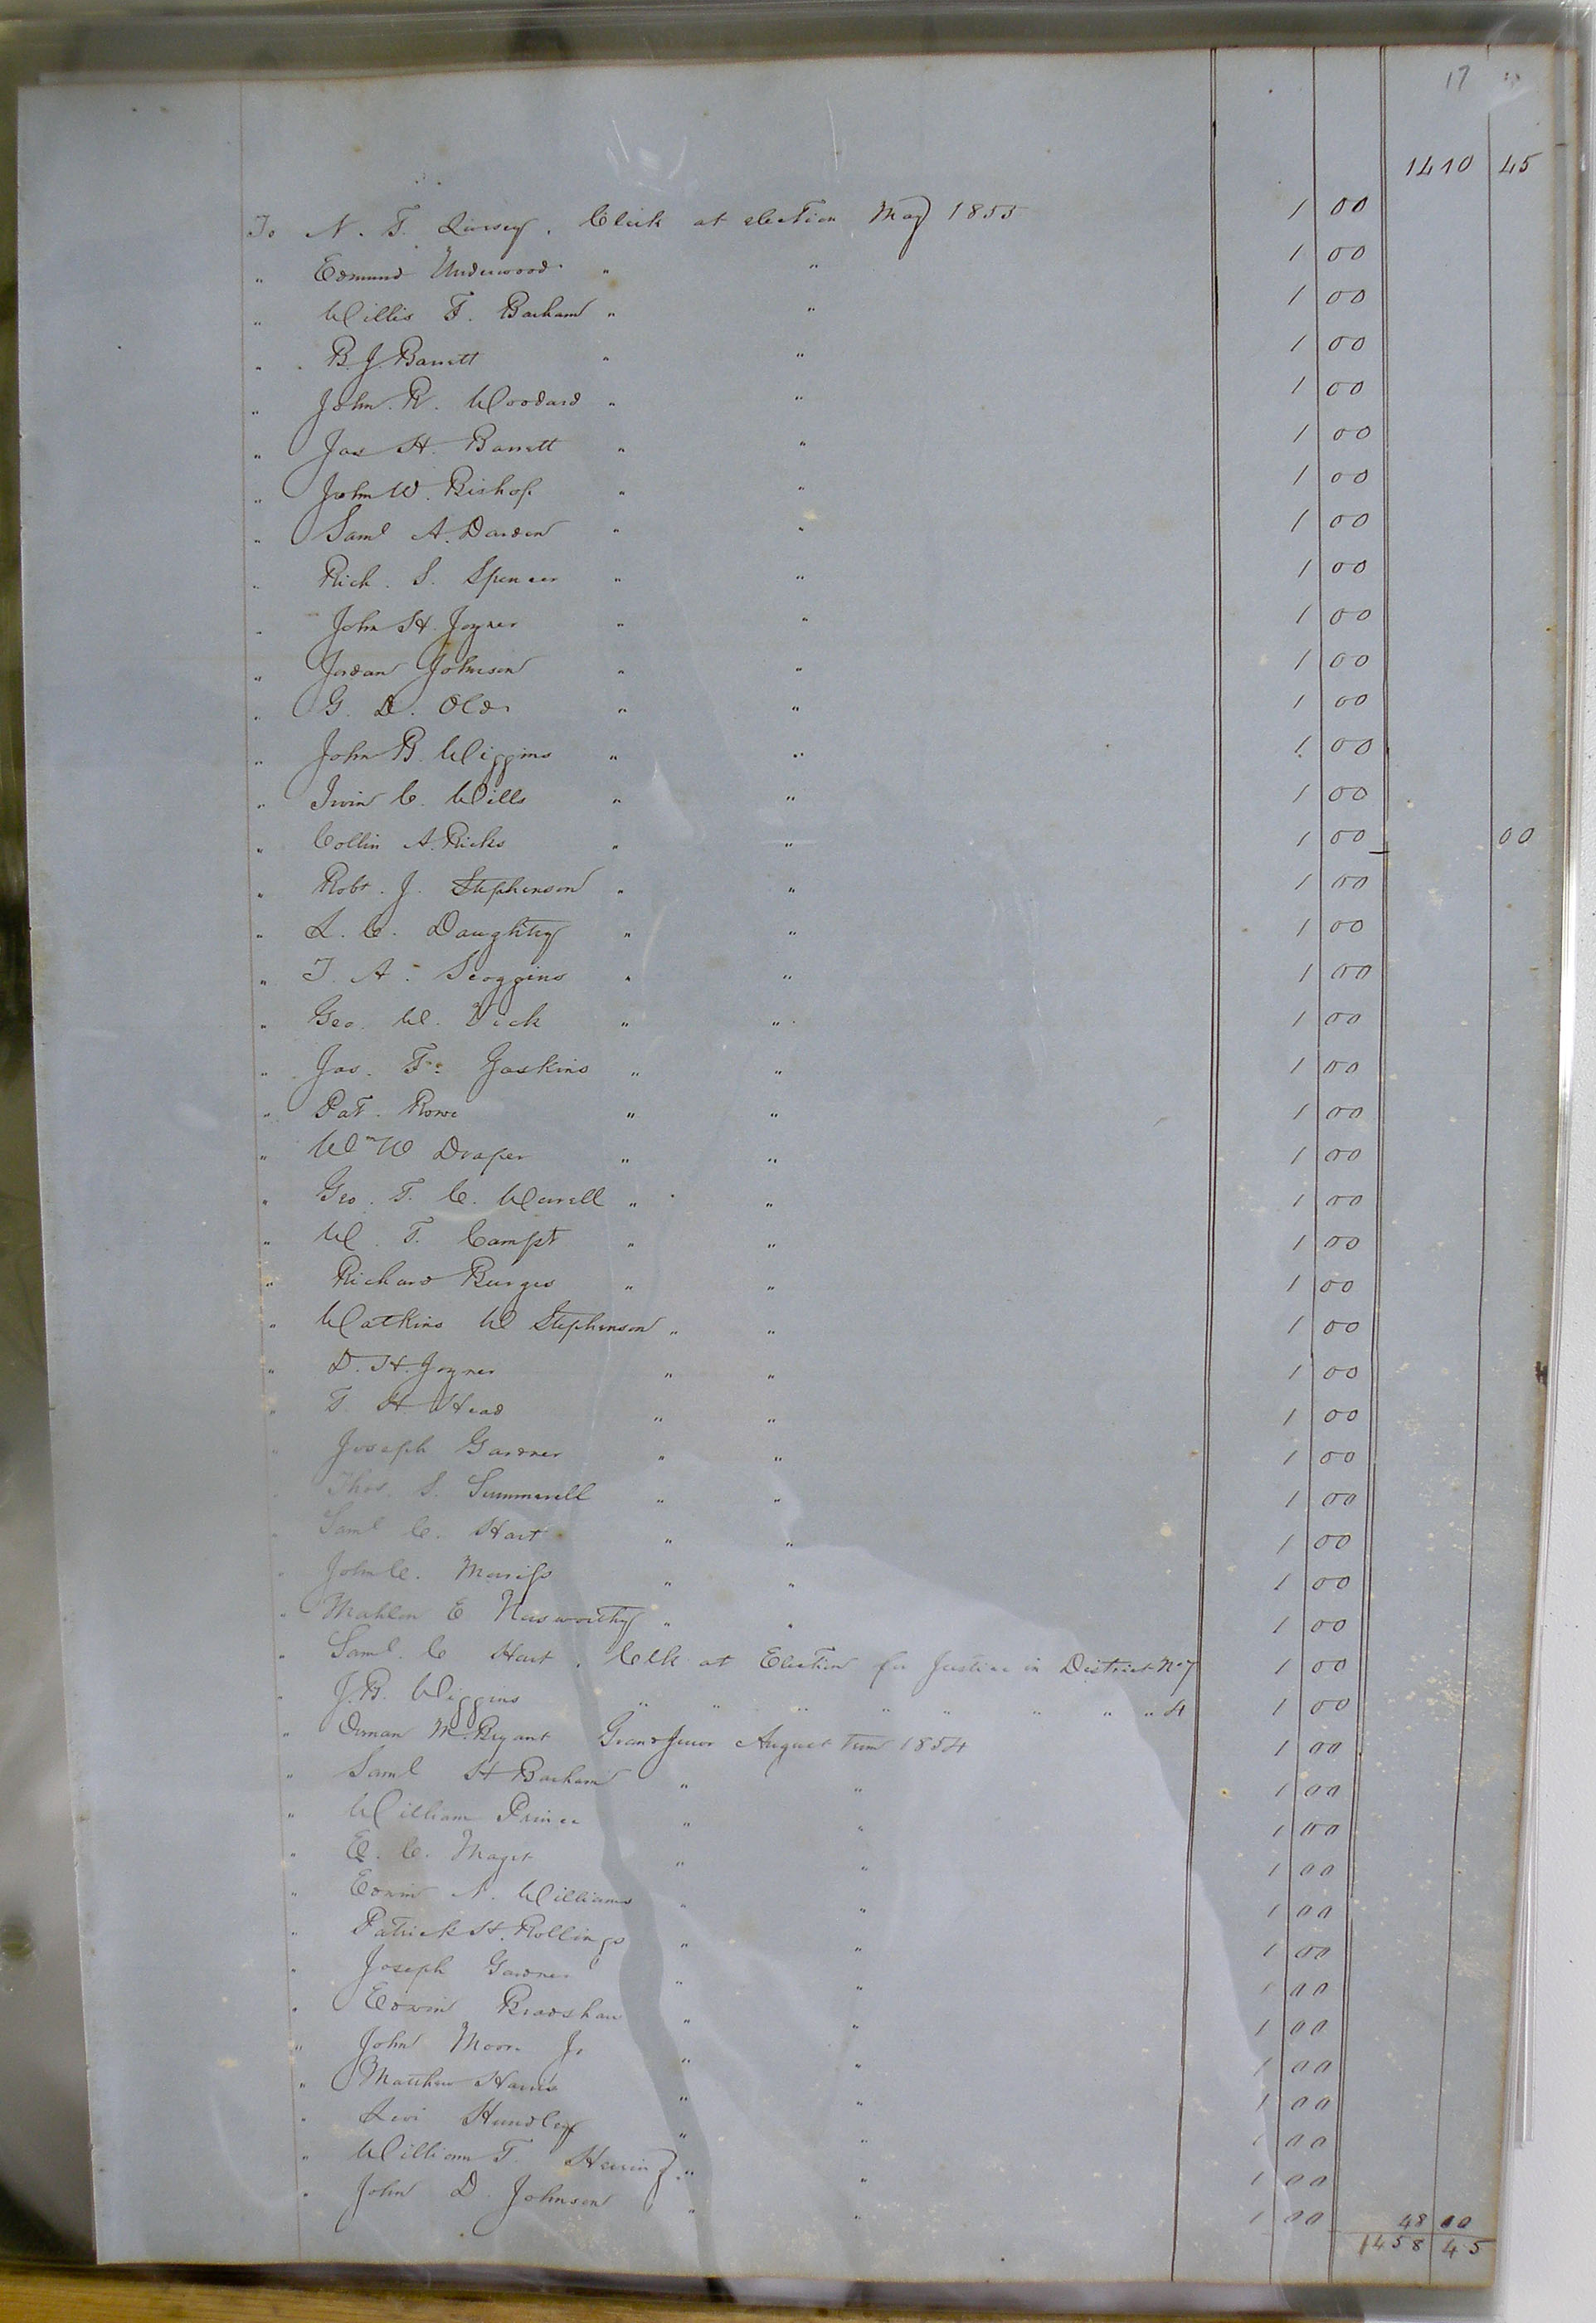 17
1410 45
To N. T. Livsey, Clerk at election May 1855 1 00
" Edmund Underwood " " 1 00
" Willis T. Barham " " 1 00
" B. J. Barrett " " 1 00
" John R. Woodard " " 1 00
" Jas H. Barrett " " 1 00
" John W. Bishop " " 1 00
" Saml A. Darden " " 1 00
" Rich. S. Spencer " " 1 00
" John H. Joyner " " 1 00
" Jordan Johnson " " 1 00
" G. D. Old " " 1 00
" John B. Wiggins " " 1 00
" Irvin C. Wills " " 1 00
" Collin A. Ricks " " 1 00 00
" Robt. J. Stephenson " " 1 00
" L. C. Daughtry " " 1 00
" T. A. Scoggins " " 1 00
" Geo. W. Vick " " 1 00
" Jas. F. Gaskins " " 1 00
" Pat. Rowe " " 1 00
" Wm W Draper " " 1 00
" Geo. T. C. Worrell " " 1 00
" W. T. Campt " " 1 00
" Richard Burges " " 1 00
" Watkins W Stephenson " " 1 00
" D. H. Joyner " " 1 00
" T. H Head " " 1 00
" Joseph Gardner " " 1 00
" Thos. S. Summerell " " 1 00
" Saml C. Hart " " 1 00
" John C. Mariss " " 1 00
" Mahlon E Nasworthy " " 1 00
" Saml. C Hart, Clk at Election for Justice in District No 7 1 00
" J. B. Wiggins " " " " " " " " 4 1 00
" Orman M. Bryant Grand Juror August term 1854 1 00
" Saml H Barham " " 1 00
" William Prince " " 1 00
" E. C. Maget " " 1 00
" Edwin N. Williams " " 1 00
" Patrick H. Rollings " " 1 00
" Joseph Gardner " " 1 00
" Edwin Bradshaw " " 1 00
" John Moore Jr " " 1 00
" Matthew Harris " " 1 00
" Levi Hundley " " 1 00
" William T. Herring " " 1 00
" John D. Johnson " " 1 00 48 00
1458 45